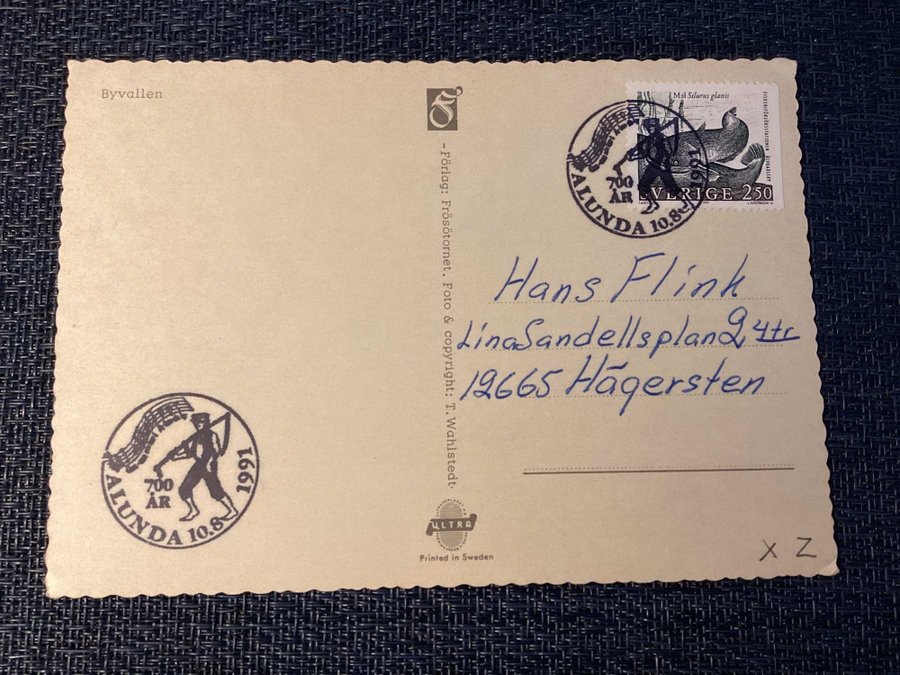 Byvallen
Mal Silurus glanis
SVERIGE 250
700
ÅR
ALUNDA 10.8 1991
Hans Flink
Lina Sandellsplan 2 4tr
12665 Hägersten
- Förlag: Frösötornet. Foto & copyright: T. Wahlstedt -
700
ÅR
ALUNDA 10.8 1991
ULTRA
Printed in Sweden
X Z